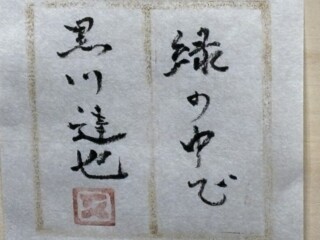 緑の中で
黒川達也